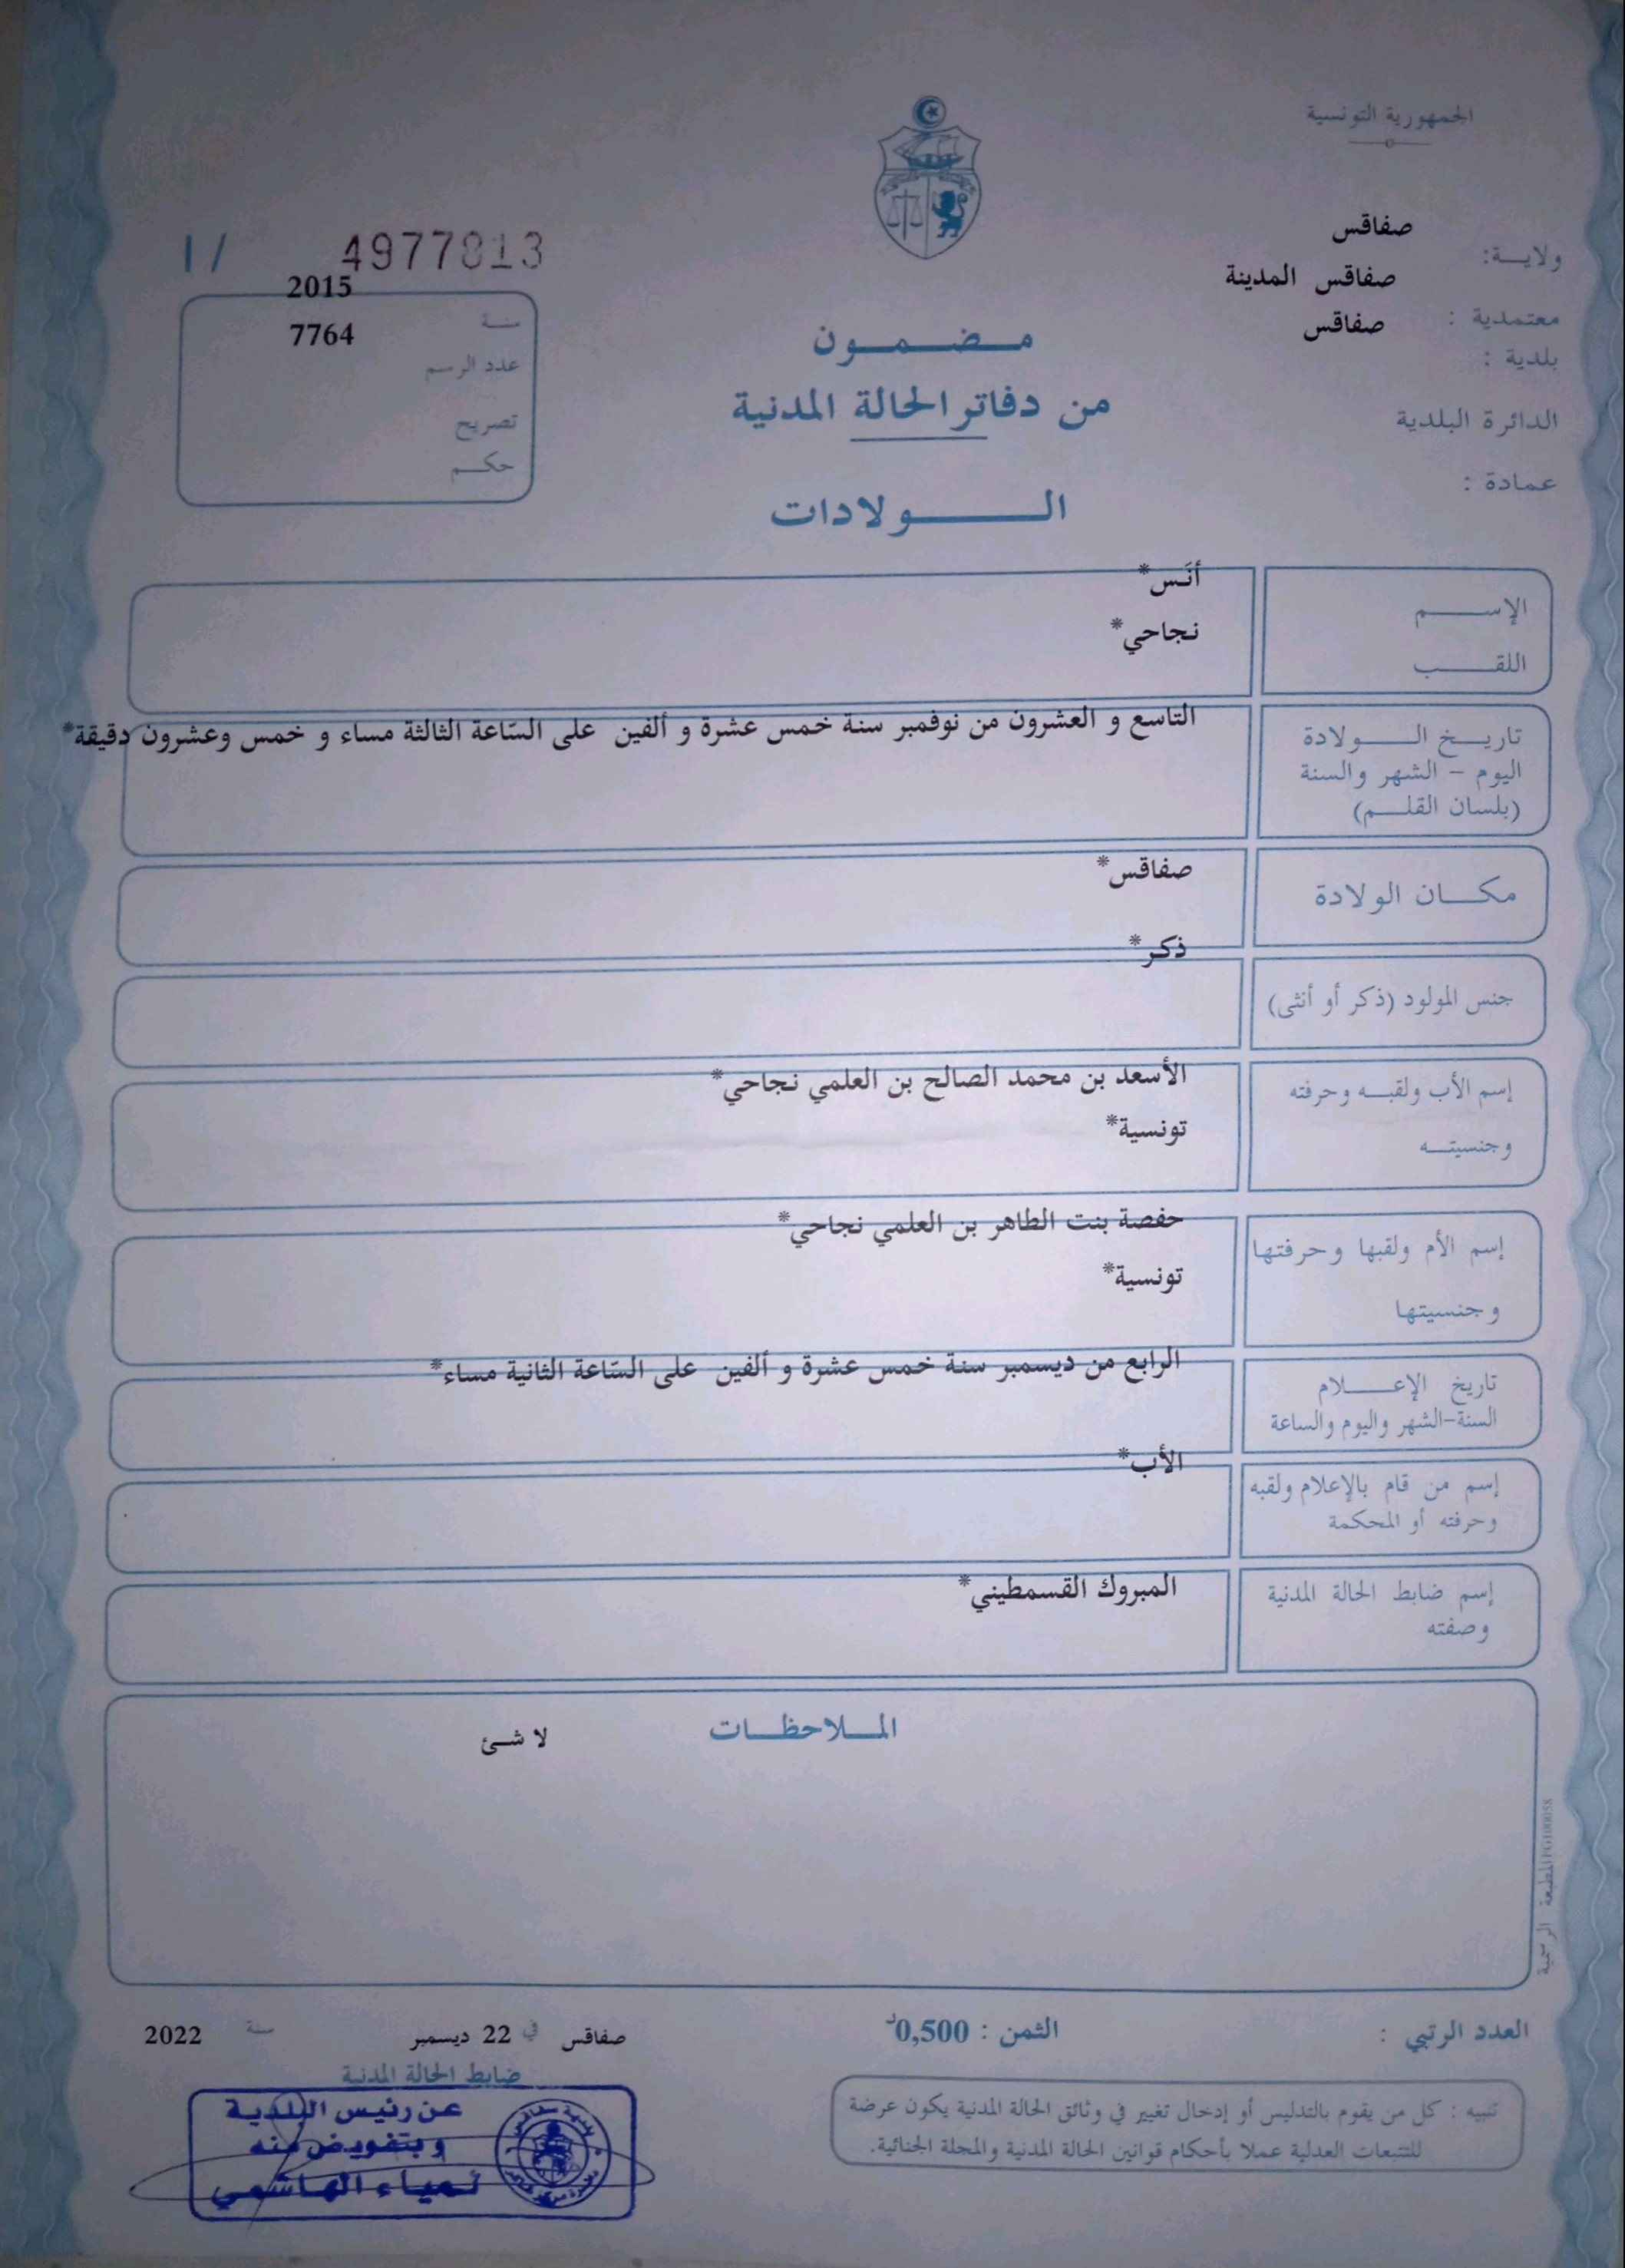 الجمهورية التونسية
ولاية: صفاقس
معتمدية : صفاقس المدينة
بلدية : صفاقس
الدائرة البلدية
عمادة :
1/ 4977813
سنة 2015
عدد الرسم 7764
تصريح
حكم
مضمون
من دفاتر الحالة المدنية
الولادات
الإسم أنَس*
اللقب نجاحي*
تاريخ الولادة
اليوم - الشهر والسنة
(بلسان القلم)
التاسع و العشرون من نوفمبر سنة خمس عشرة و ألفين على السّاعة الثالثة مساء و خمس وعشرون دقيقة*
مكان الولادة صفاقس*
جنس المولود (ذكر أو أنثى) ذكر*
إسم الأب ولقبه وحرفته الأسعد بن محمد الصالح بن العلمي نجاحي*
وجنسيته تونسية*
إسم الأم ولقبها وحرفتها حفصة بنت الطاهر بن العلمي نجاحي*
وجنسيتها تونسية*
تاريخ الإعلام
السنة-الشهر واليوم والساعة
الرابع من ديسمبر سنة خمس عشرة و ألفين على السّاعة الثانية مساء*
إسم من قام بالإعلام ولقبه
وحرفته أو المحكمة
الأب*
إسم ضابط الحالة المدنية
وصفته
المبروك القسمطيني*
الملاحظات
لا شئ
المطبعة الرسمية
العدد الرتبي :
الثمن : 0,500د
صفاقس في 22 ديسمبر سنة 2022
ضابط الحالة المدنية
عن رئيس البلدية
وبتفويض منه
لمياء الهاشمي
تنبيه : كل من يقوم بالتدليس أو إدخال تغيير في وثائق الحالة المدنية يكون عرضة
للتتبعات العدلية عملا بأحكام قوانين الحالة المدنية والمجلة الجنائية.